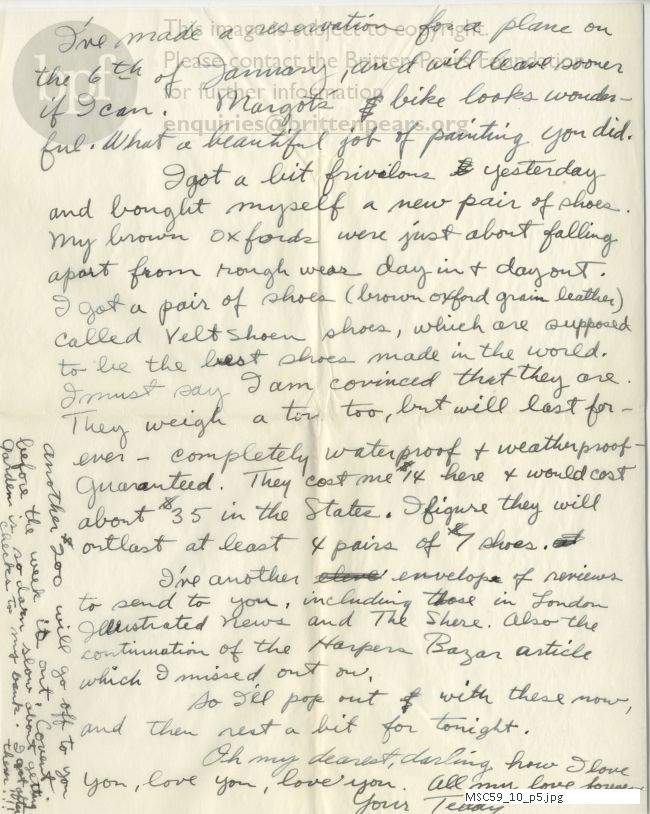 This image is subject to copyright.
Please contact the Britten-Pears Foundation
for further information
enquiries@brittenpears.org
bpf
I've made a reservation for a plane on
the 6th of January, and will leave sooner
if I can. Margot's bike looks wonder-
ful. What a beautiful job of painting you did.
I got a bit frivilous yesterday
and bought myself a new pair of shoes.
My brown oxfords were just about falling
apart from rough wear day in + day out.
I got a pair of shoes (brown oxford grain leather)
called Veltshoen shoes, which are supposed
to be the best shoes made in the world.
I must say I am covinced that they are.
They weigh a ton, too, but will last for-
ever - completely waterproof + weatherproof-
Guaranteed. They cost me $14 here + would cost
about $35 in the States. I figure they will
outlast at least 4 pairs of $7 shoes.
I've another envelope of reviews
to send to you, including those in London
Illustrated News and The Shere. Also the
continuation of the Harpers Bazar article
which I missed out on.
So I'll pop out with these now,
and then rest a bit for tonight.
Oh my dearest, darling how I love
you, love you, love you. All my love forever
Your Teddy
another $200 will go off to you
before the week is out. Covent
Garden is so darn slow about getting
checks to my bank. I got after
them!!!
MSC59_10_p5.jpg